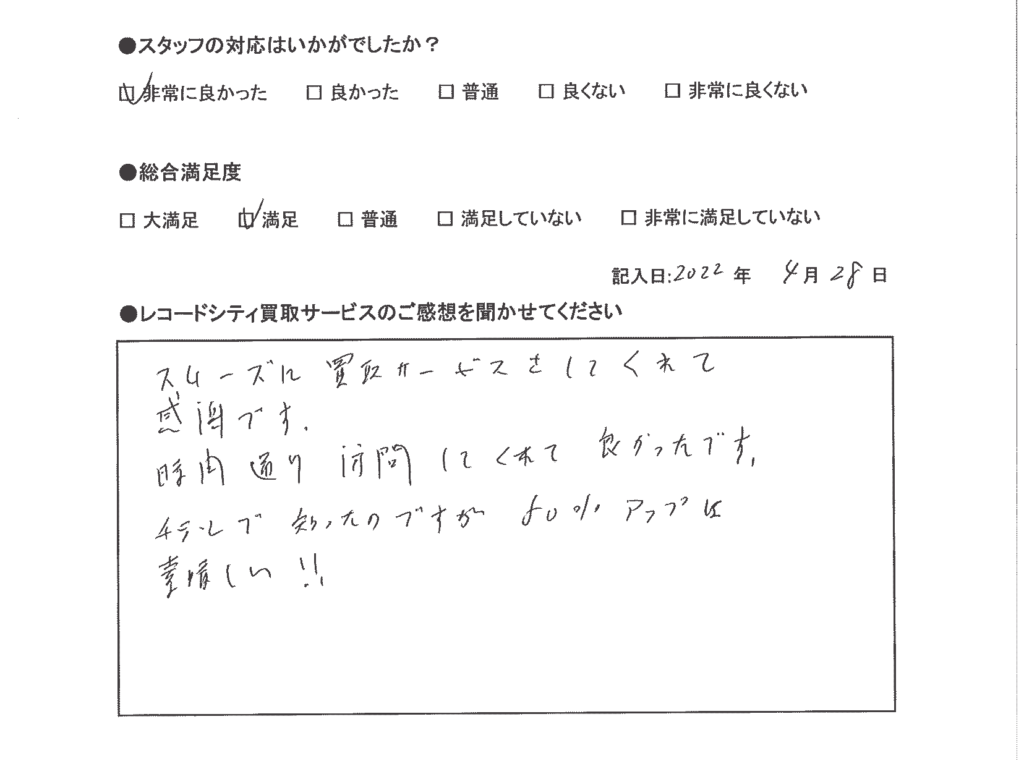 ●スタッフの対応はいかがでしたか?
☑ 非常に良かった □ 良かった □ 普通 □ 良くない □ 非常に良くない
●総合満足度
□ 大満足 ☑ 満足 □ 普通 □ 満足していない □ 非常に満足していない
記入日:2022年 4月28日
●レコードシティ買取サービスのご感想を聞かせてください
スムーズに買取サービスをしてくれて
感謝です.
時間通り訪問してくれて良かったです.
チラシで知ったのですが 50%アップは
素晴しい!!